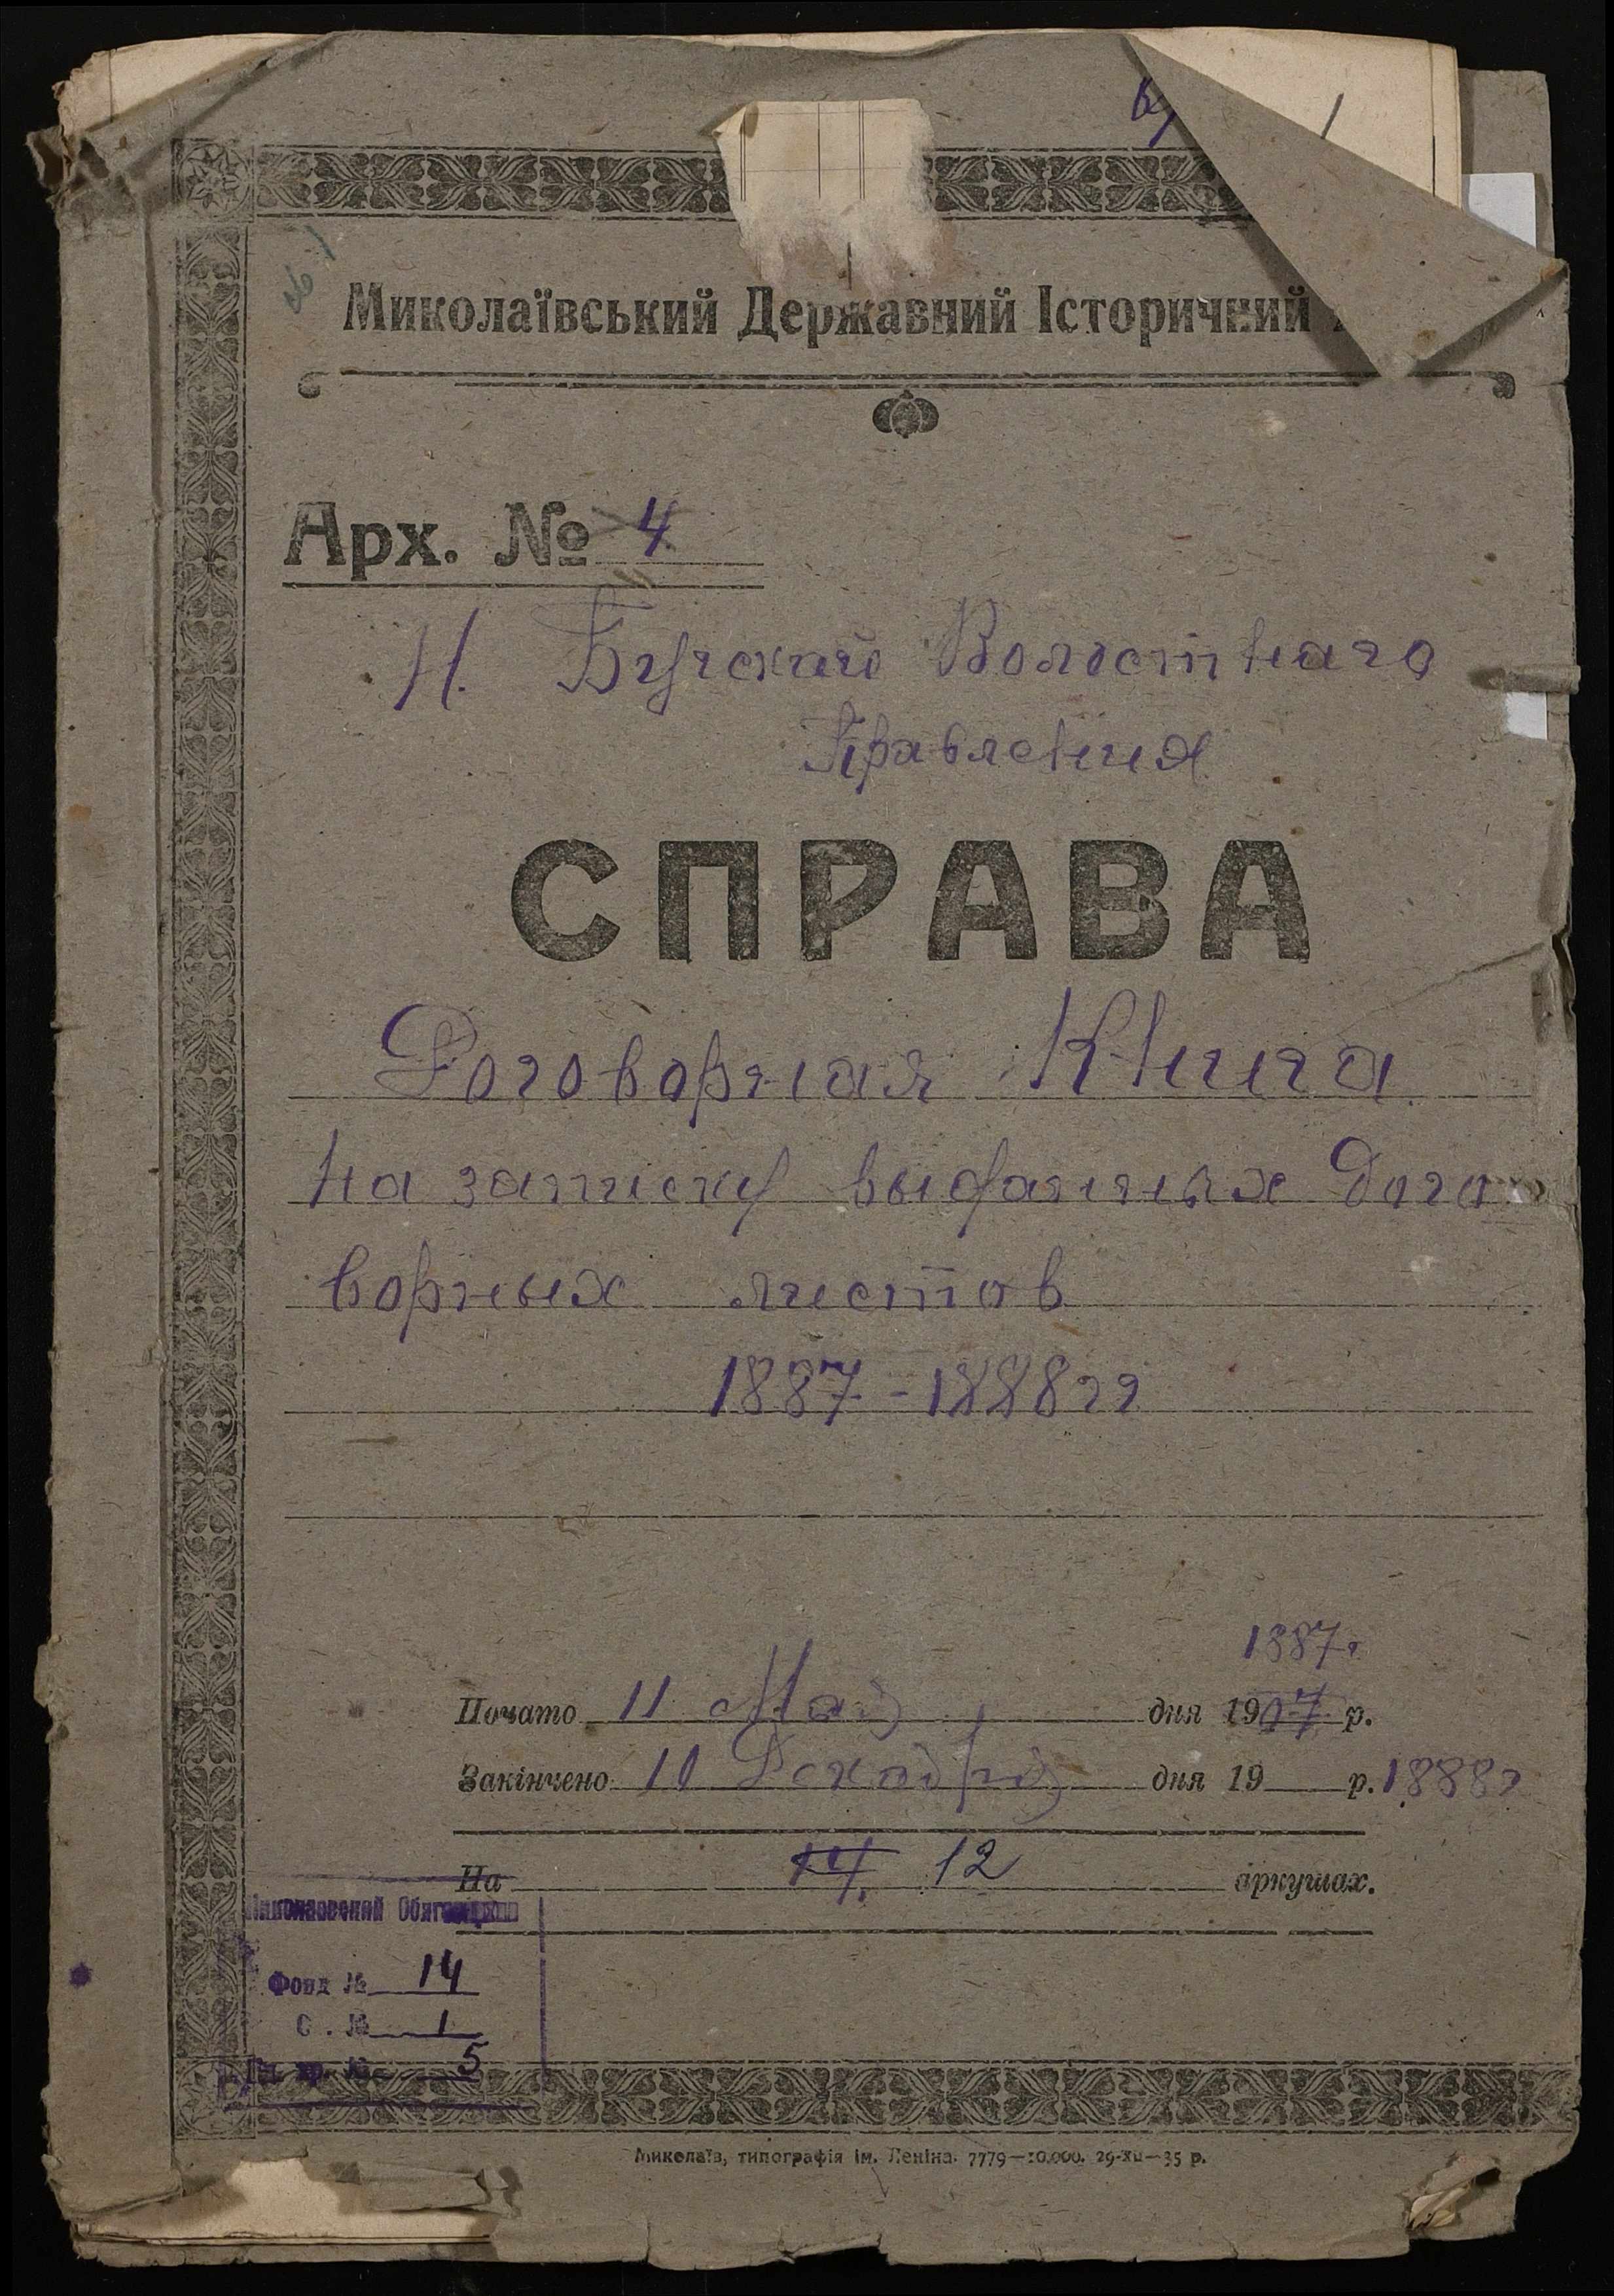 Миколаївський Державний Історичний
Арх. № 4
Н. Бугскаго Волостнаго
Правления
СПРАВА
Договорная Книга
на записку выданных дого
ворных листов
1887-1888 гг
1887г
Почато 11 Мая дня 1907 р.
Закінчено 10 Декабря дня 19 р. 1888г
На 14. 12 аркушах.
Фонд № 14
О . № 1
Ед. хр. № 5
Миколаїв, типографія ім. Леніна. 7779—10.000. 29-XII—35 р.